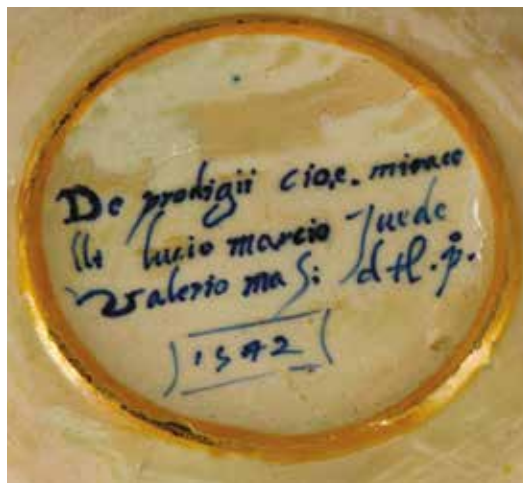 De prodigii cioe. mirace
lli lucio marcio Juede
Valerio mas: d tl. p.
1542